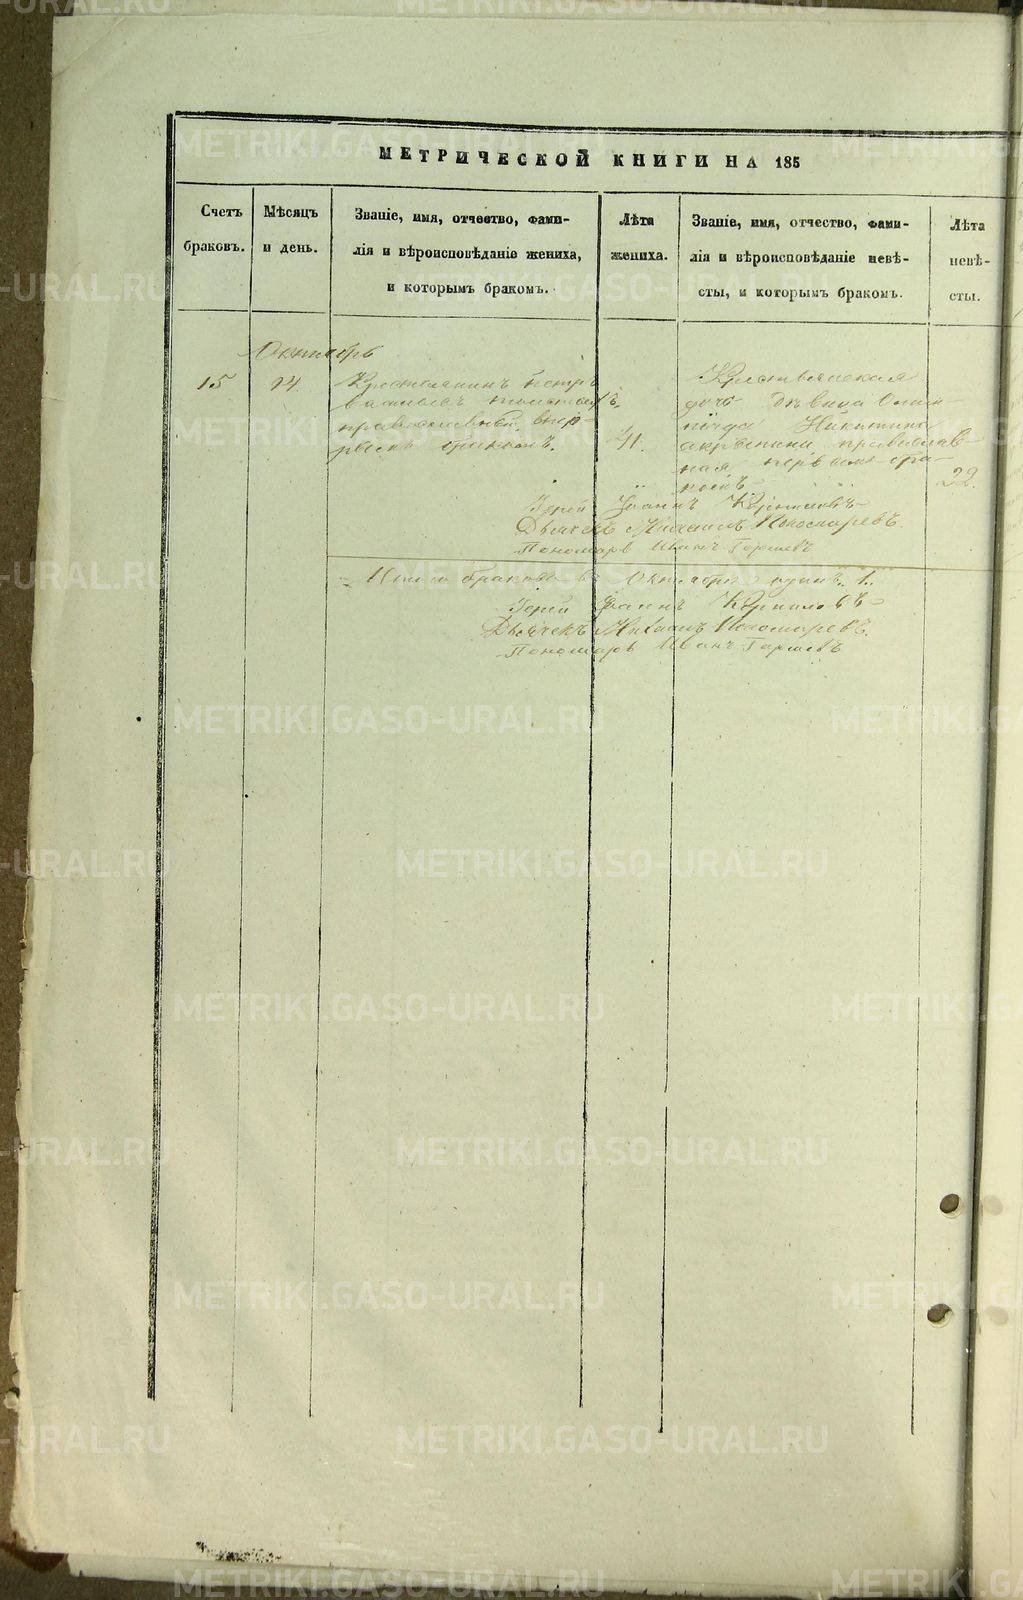 МЕТРИЧЕСКОЙ КНИГИ НА 185
Счетъ браковъ.
Мѣсяцъ и день.
Званіе, имя, отчество, фами-
лія и вѣроисповѣданіе жениха,
и которымъ бракомъ.
Лѣта
жениха.
Званіе, имя, отчество, фами-
лія и вѣроисповѣданіе невѣ-
сты, и которымъ бракомъ.
Лѣта
невѣ-
сты.
Октябрь
15
14
Крестьянинъ Петръ
Васильевъ
православный, пер-
бракомъ.
Крестьянская
дочь дѣвица Олим-
піада Никитина
православ-
ная первымъ бра-
комъ
22.
Іерей Іоаннъ Корниловъ
Дьячекъ Михаилъ Пономаревъ.
Пономарь Иванъ
Итого браковъ въ Октябрѣ одинъ 1.
Іерей Іоаннъ Корниловъ
Дьячекъ Михаилъ Пономаревъ.
Пономарь Иванъ
METRIKI.GASO-URAL.RU